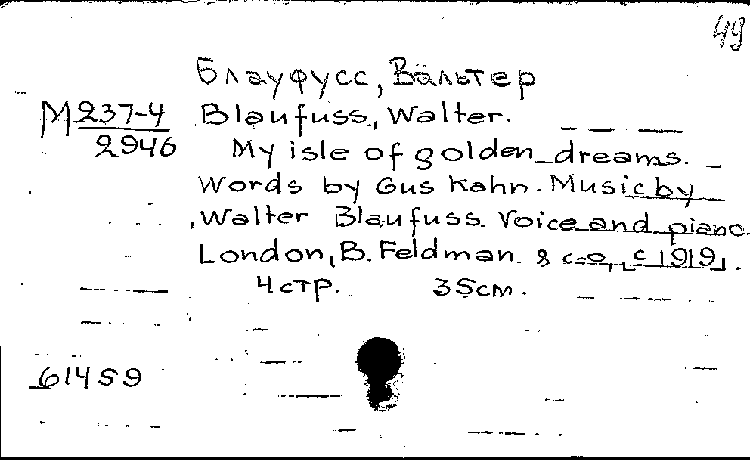 49
Блауфусс, Вальтер
М 237-4 Blaufuss, Walter.
2946 My isle of golden dreams.
Words by Gus Kahn. Music by
Walter Blaufuss. Voice and piano
London, B. Feldman & co, [c 1919].
4 стр. 35 см.
61459